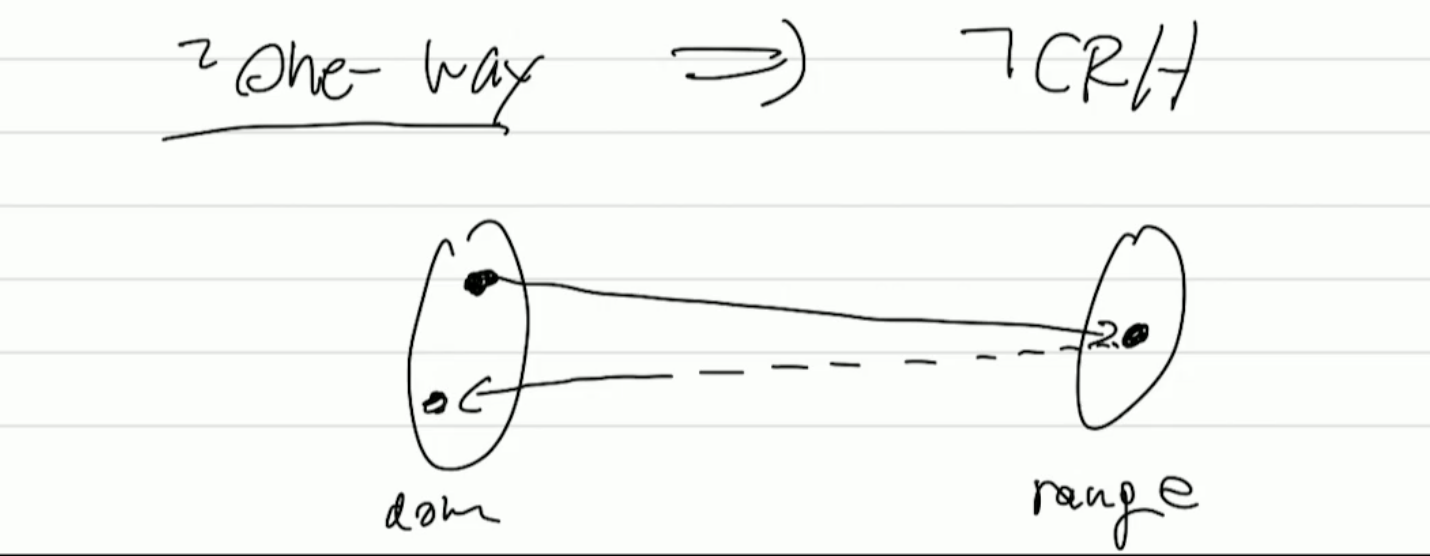 ¬ One-way ⇒ ¬ CRH
dom
range